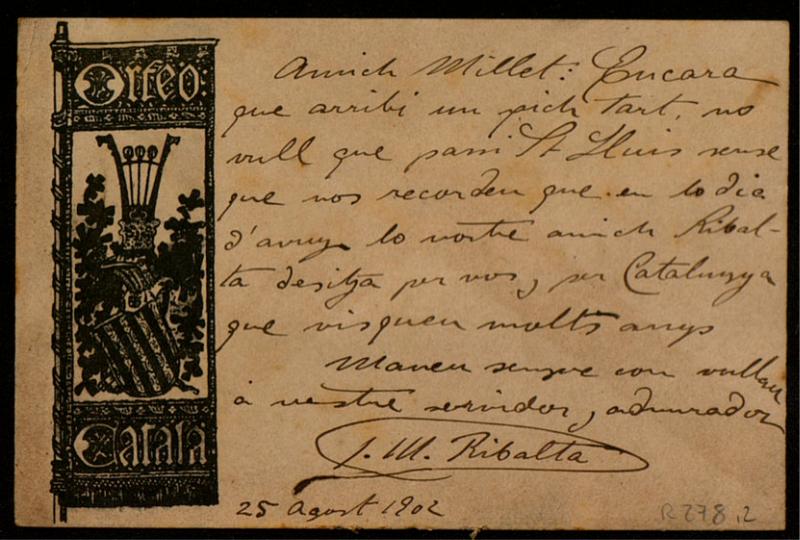 Orfeó:
Català
Amich Millet: Encara
que arribi un pich tart, no
vull que passi St Lluis sense
que vos recordeu que en lo dia
d'avuy lo vostre amich Ribal-
ta desitja per vos, y per Catalunya
que visqueu molts anys
Maneu sempre com vullau
á vostre servidor, y admirador
J. M. Ribalta
25 Agost 1902
R 278.2